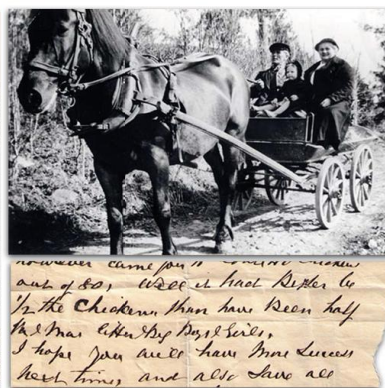 however came you
out of 80, Well it had Better be
1/2 the Chickens than have Been half
Big Boys & Girls,
I hope you will have More Success
Next time and also Save all